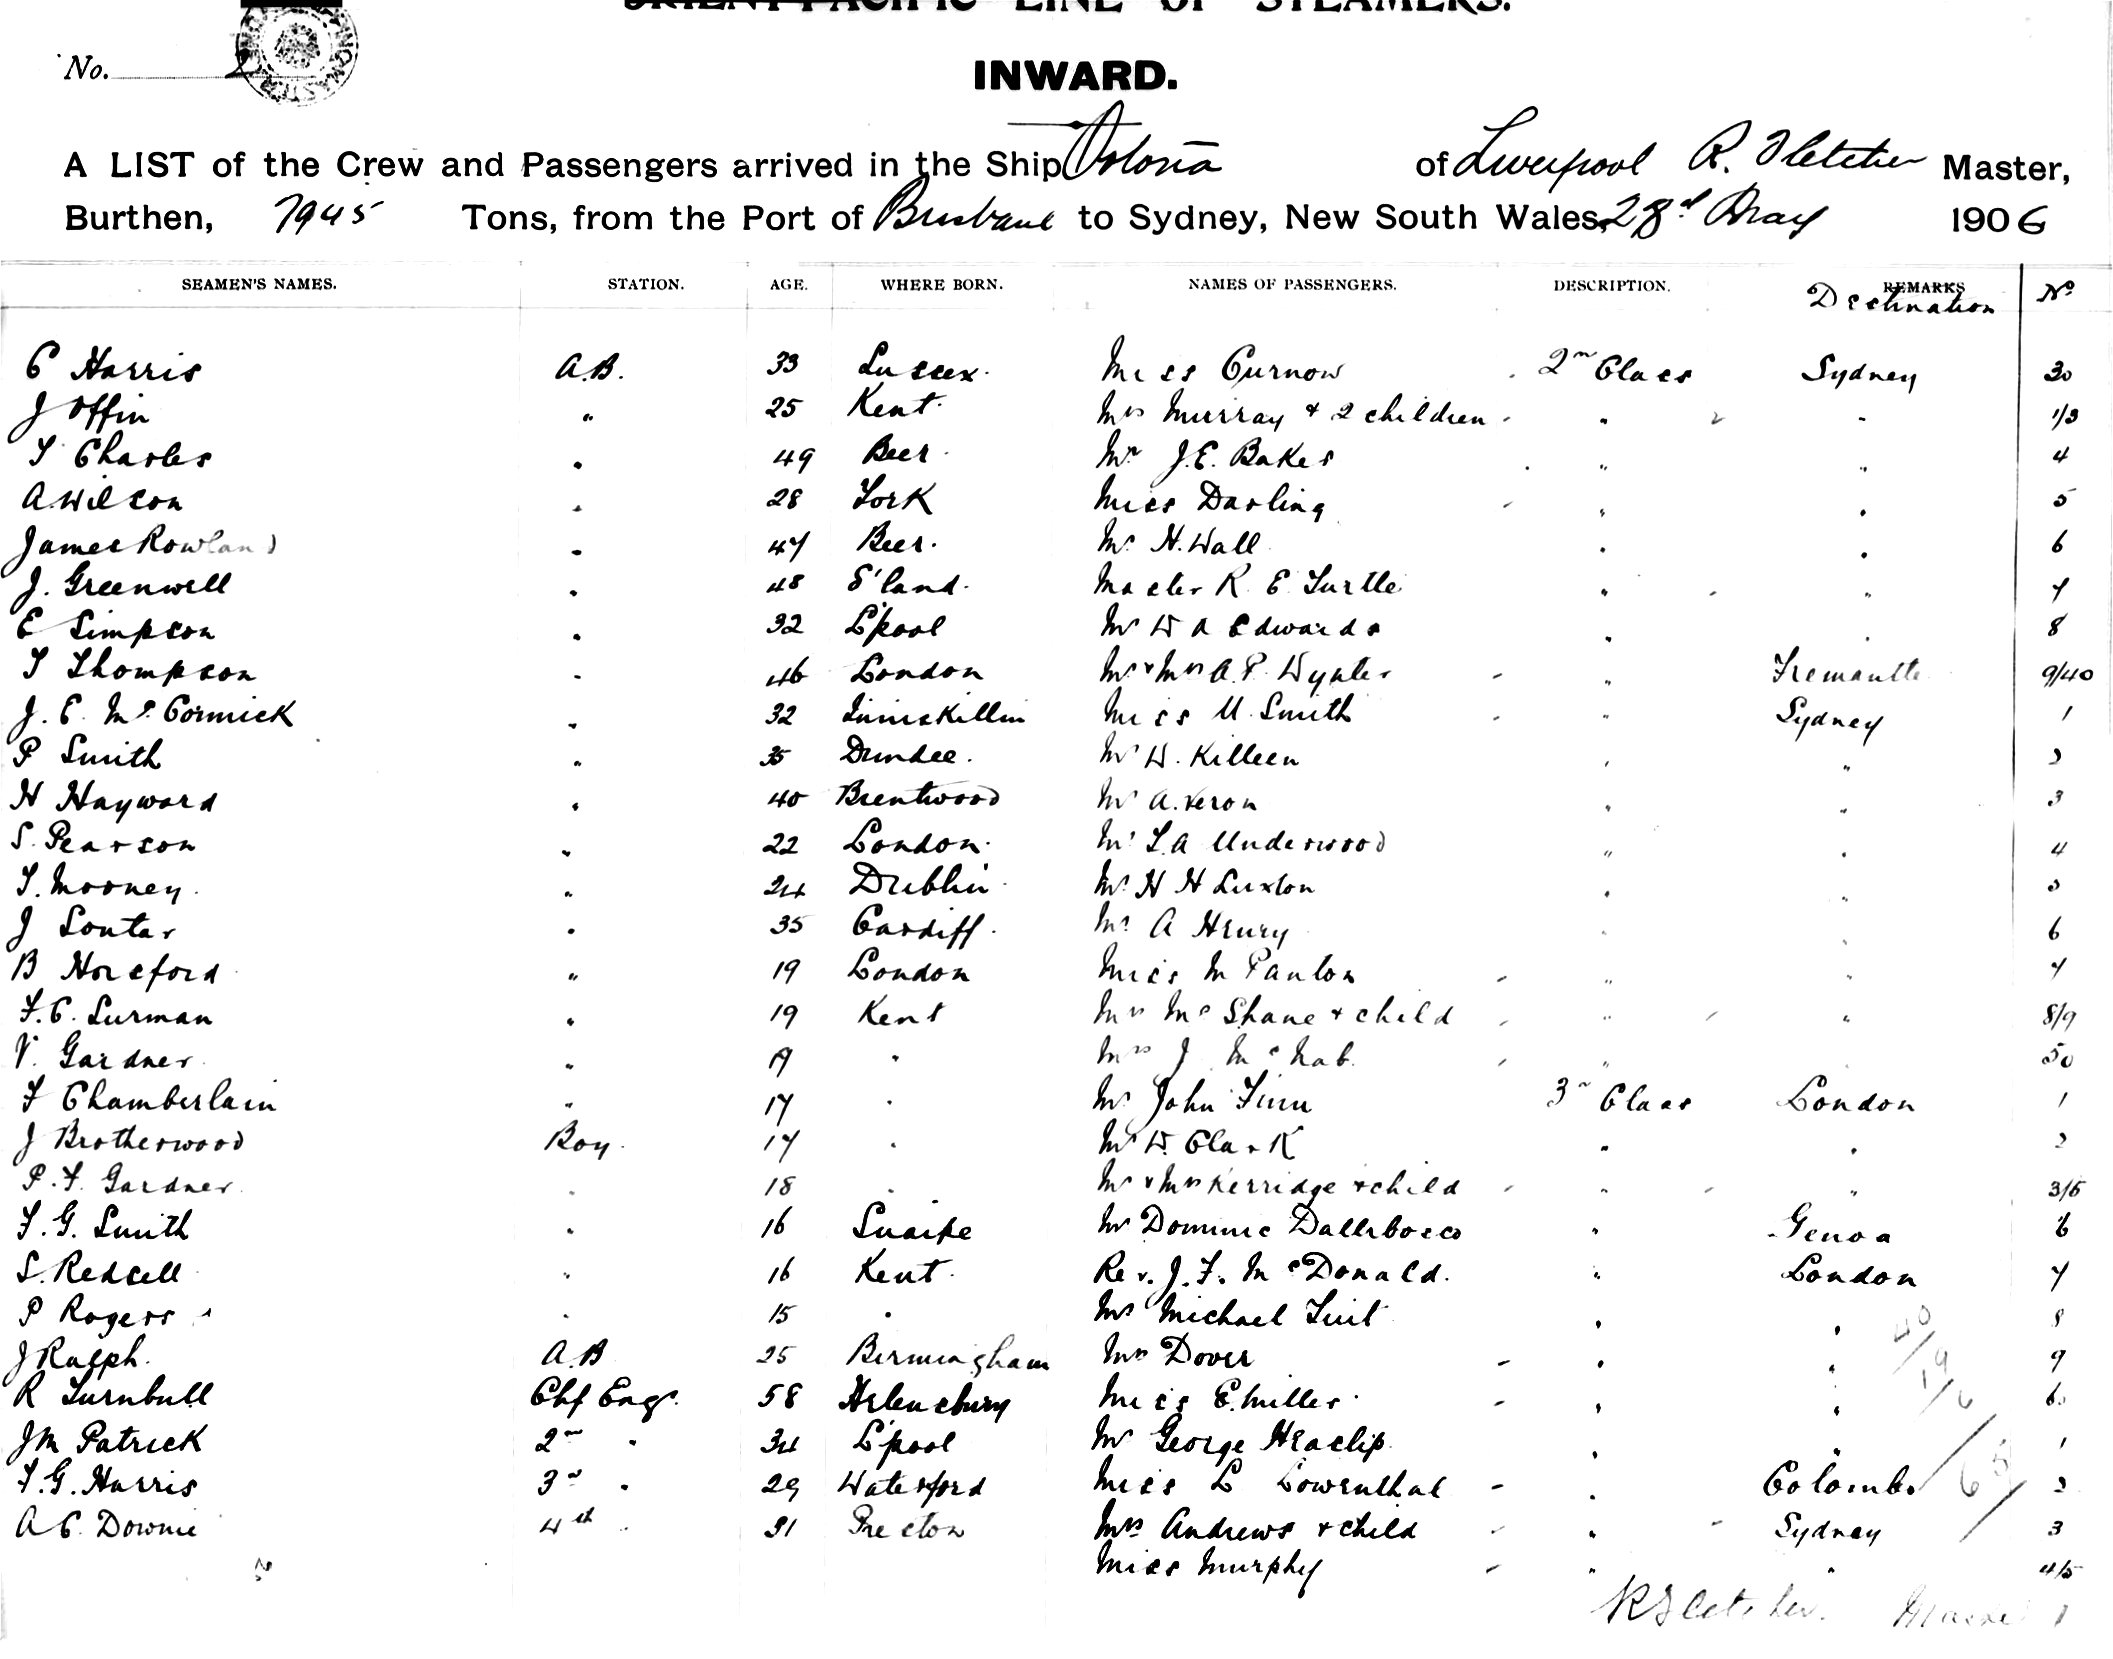 ORIENT-PACIFIC LINE OF STEAMERS.
No. 2
INWARD.
A LIST of the Crew and Passengers arrived in the Ship Oroya of Liverpool R. Fletcher Master,
Burthen, 7945 Tons, from the Port of Brisbane to Sydney, New South Wales, 28th May 1906
SEAMEN'S NAMES. STATION. AGE. WHERE BORN. NAMES OF PASSENGERS. DESCRIPTION. REMARKS Destination No
C Harris A.B. 33 Sussex. Miss Curnow 2nd Class Sydney 30
J Offin " 25 Kent. Mrs Murray + 2 children " " 1/3
T Charles " 49 Beer. Mr J.E. Baker " " 4
A Wilson " 28 York Miss Darling " " 5
James Rowland " 47 Beer. Mr H. Wall " " 6
J. Greenwell " 48 S'land. Master R. E. Turtle " " 7
E Simpson " 32 L'pool Mr W A Edwards " " 8
T Thompson " 46 London Mr + Mrs A. P. Wynter " Fremantle 9/40
J. C. McCormick " 32 Inniskillin Miss M. Smith " Sydney 1
P Smith " 35 Dundee. Mr W. Killeen " " 2
H Hayward " 40 Brentwood Mr A. Veron " " 3
S. Pearson " 22 London. Mr T. A Underwood " " 4
T. Mooney. " 24 Dublin Mr H H Luxton " " 5
J Soutar " 35 Cardiff. Mr A Henry " " 6
B Horsford " 19 London Miss M Panton " " 7
F. C. Surman " 19 Kent Mrs McShane + child " " 8/9
V. Gardner " 19 " Mrs J McNab. " " 50
F Chamberlain " 17 " Mr John Finn 3rd Class London 1
J Brotherwood Boy. 17 " Mr W. Clark " " 2
P. F. Gardner " 18 " Mr + Mrs Kerridge + child " " 3/5
F. G. Smith " 16 Mr Dominic Dallabosco " Genoa 6
S. Redsell " 16 Kent. Rev. J. F. McDonald. " London 7
P Rogers " 15 " Mr Michael Tuit " " 8
J Ralph. A.B 25 Birmingham Mrs Dover " " 9
R Turnbull Chf Engr. 58 Helensburg Miss E. Miller. " " 60
J M Patrick 2nd " 34 L'pool Mr George Heaslip. " " 1
F. G. Harris 3rd " 29 Waterford Miss L Lowenthal " Colombo 2
A C. Downie 4th " 31 Preston Mrs Andrews + child " Sydney 3
Miss Murphy " " 4/5
R Fletcher. Master